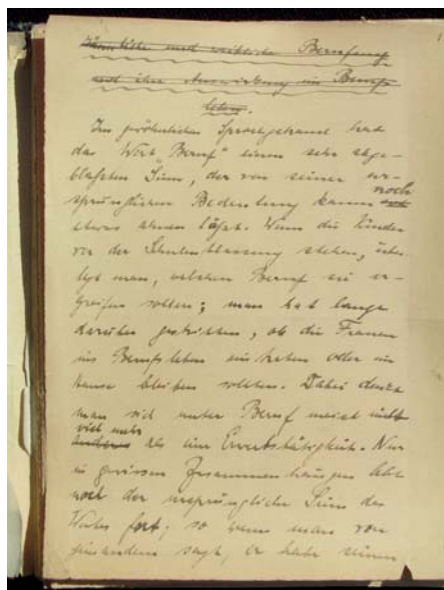 ~~Männliche und weibliche Berufung~~
~~und ihre Auswirkung im Berufs-~~
~~leben.~~
Im gewöhnlichen Sprachgebrauch hat
das Wort „Beruf“ einen sehr abge-
blaßten Sinn, der von seiner ur-
sprünglichen Bedeutung kaum noch
etwas ahnen läßt. Wenn die Kinder
vor der Schulentlassung stehen, über-
legt man, welchen Beruf sie er-
greifen sollen; man hat lange
darüber gestritten, ob die Frauen
ins Berufsleben eintreten oder im
Hause bleiben sollten. Dabei denkt
man sich unter Beruf meist nicht
viel mehr ~~anderes~~ als eine Erwerbstätigkeit. Nur
in gewissen Zusammenhängen lebt
noch der ursprüngliche Sinn des
Wortes fort; so wenn man von
jemandem sagt, er habe seinen